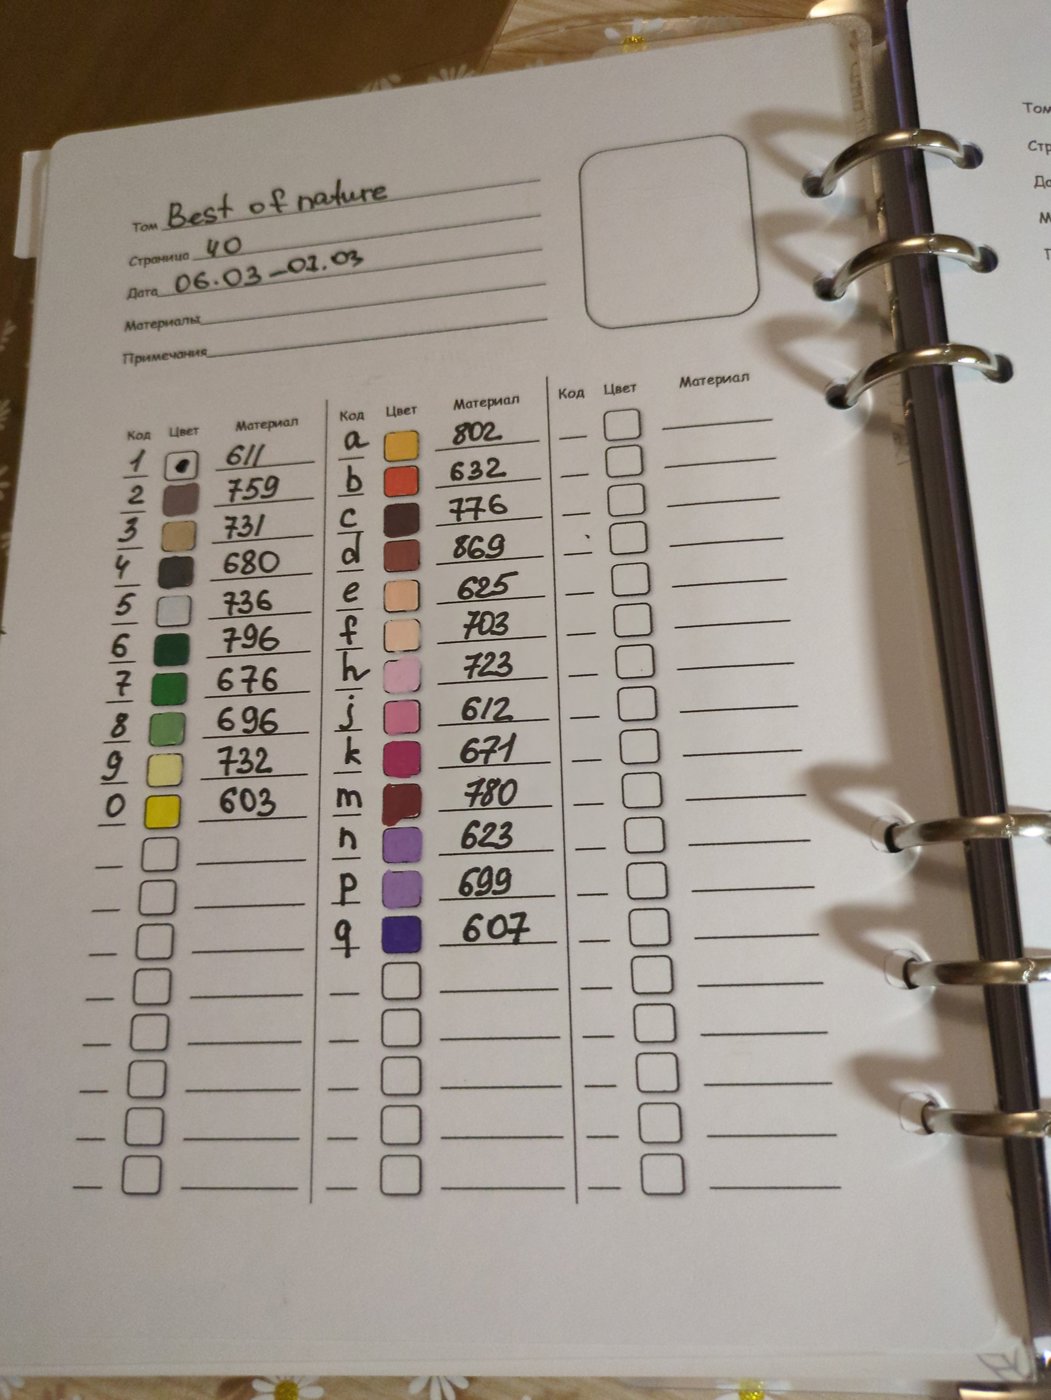 Том Best of nature
Страница 40
Дата 06.03-07.03
Материалы
Примечания
Код Цвет Материал
1 611
2 759
3 731
4 680
5 736
6 796
7 676
8 696
9 732
0 603
Код Цвет Материал
a 802
b 632
c 776
d 869
e 625
f 703
h 723
j 612
k 671
m 780
n 623
p 699
q 607
Код Цвет Материал
Том